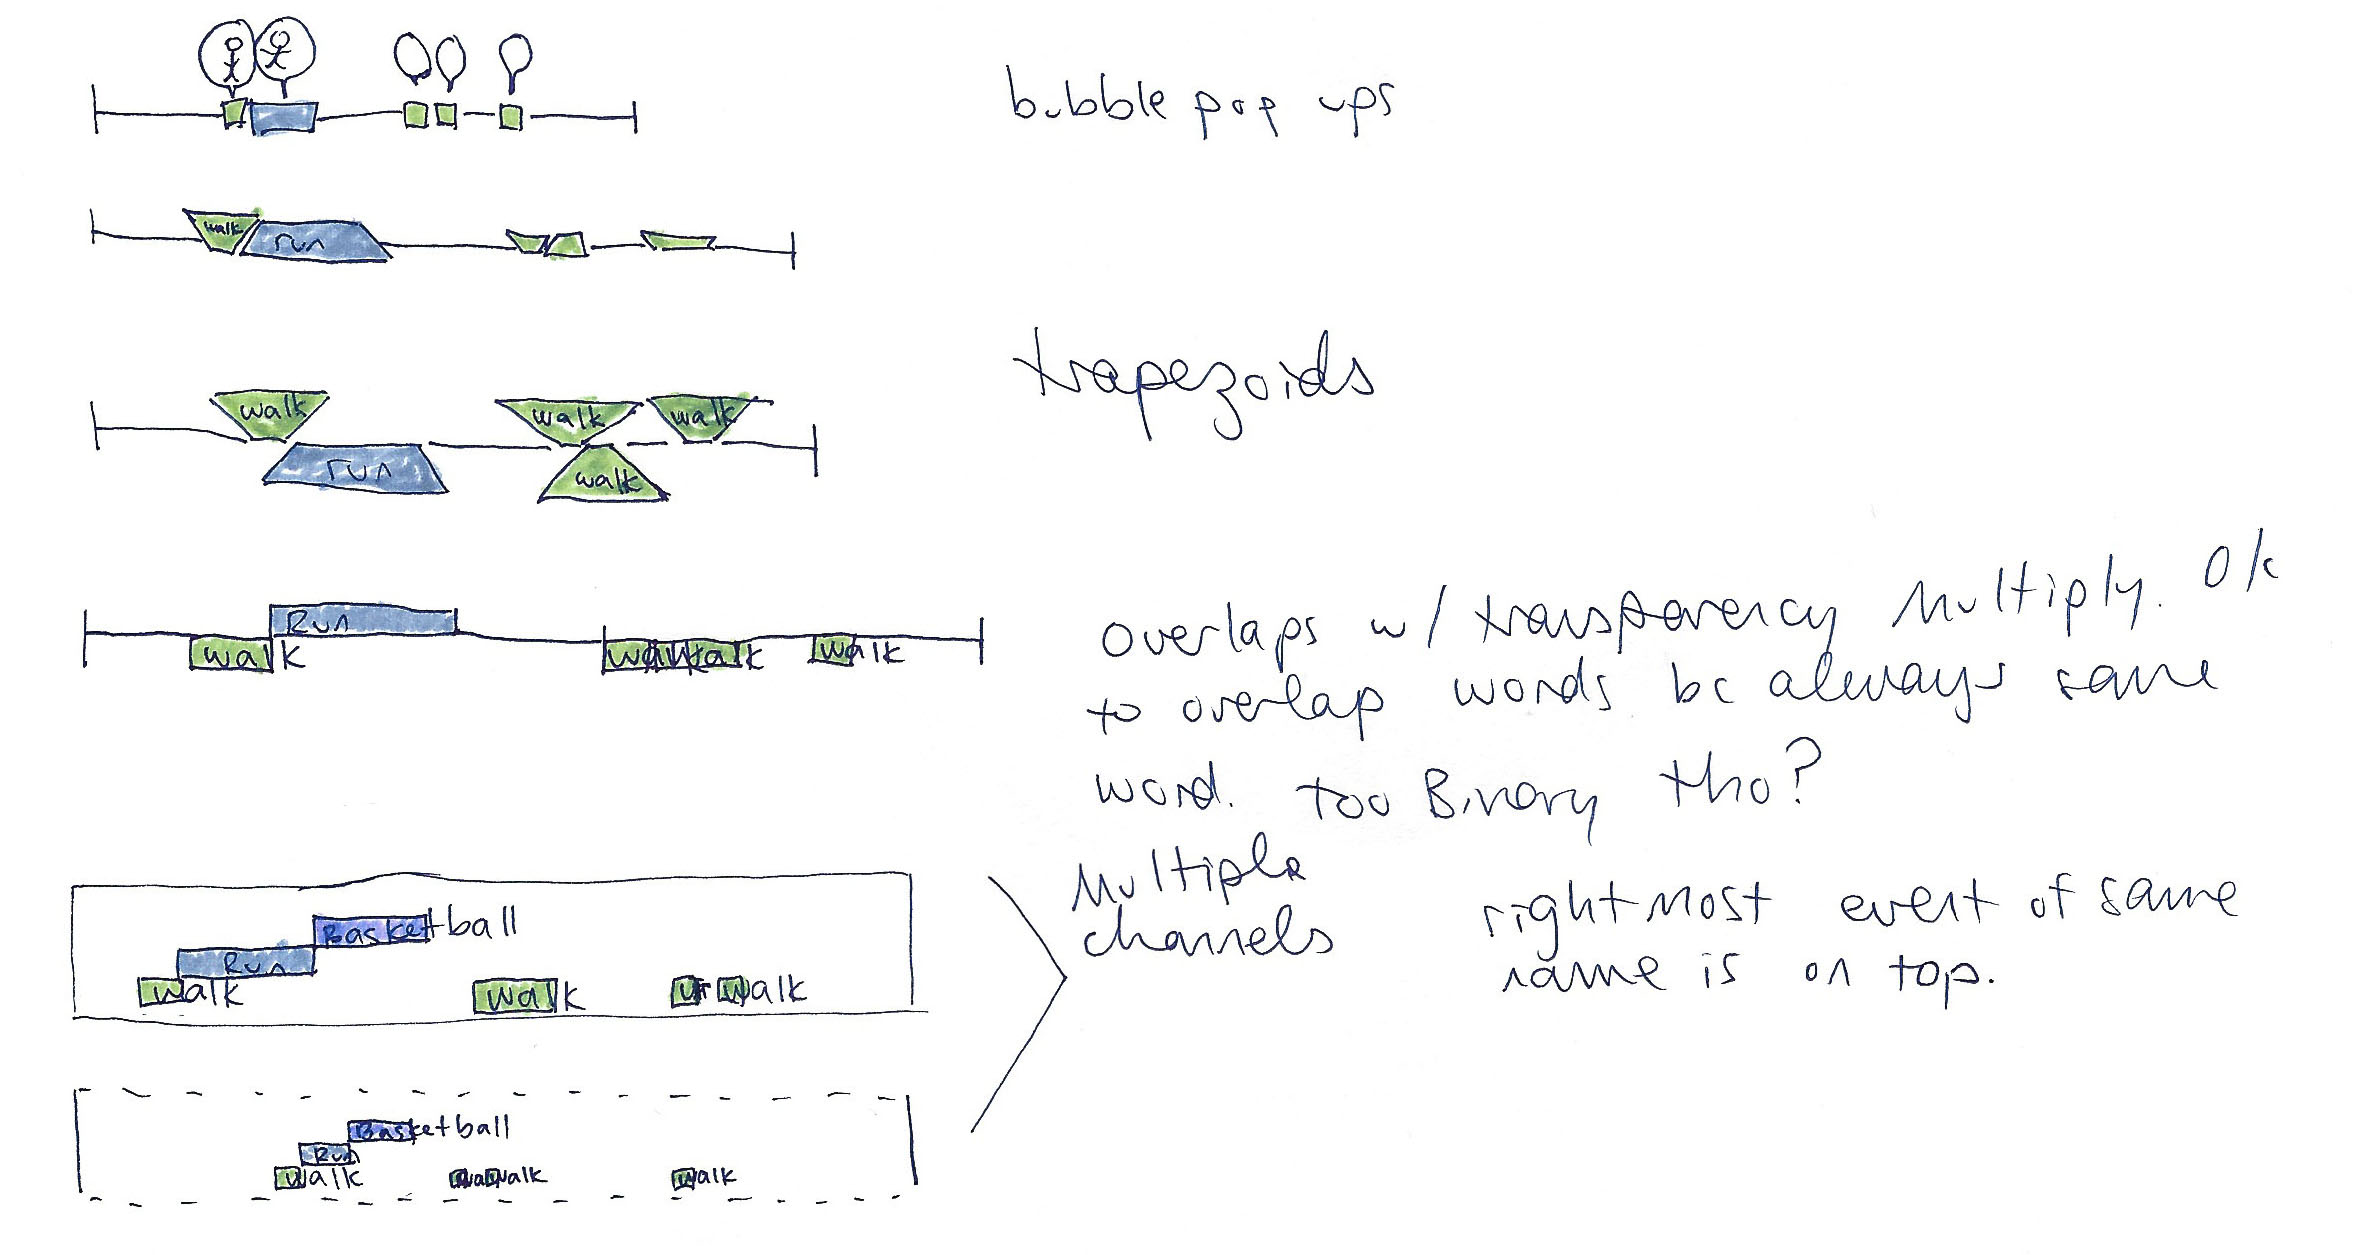 bubble pop ups
walk run
trapezoids
walk walk walk
run walk
Run
walk walk walk
overlaps w/ transparency Multiply. Ok
to overlap words bc always same
word. too Binary tho?
Multiple
channels
rightmost event of same
name is on top.
Basketball
Run
walk walk walk
Basketball
Run
walk walk walk